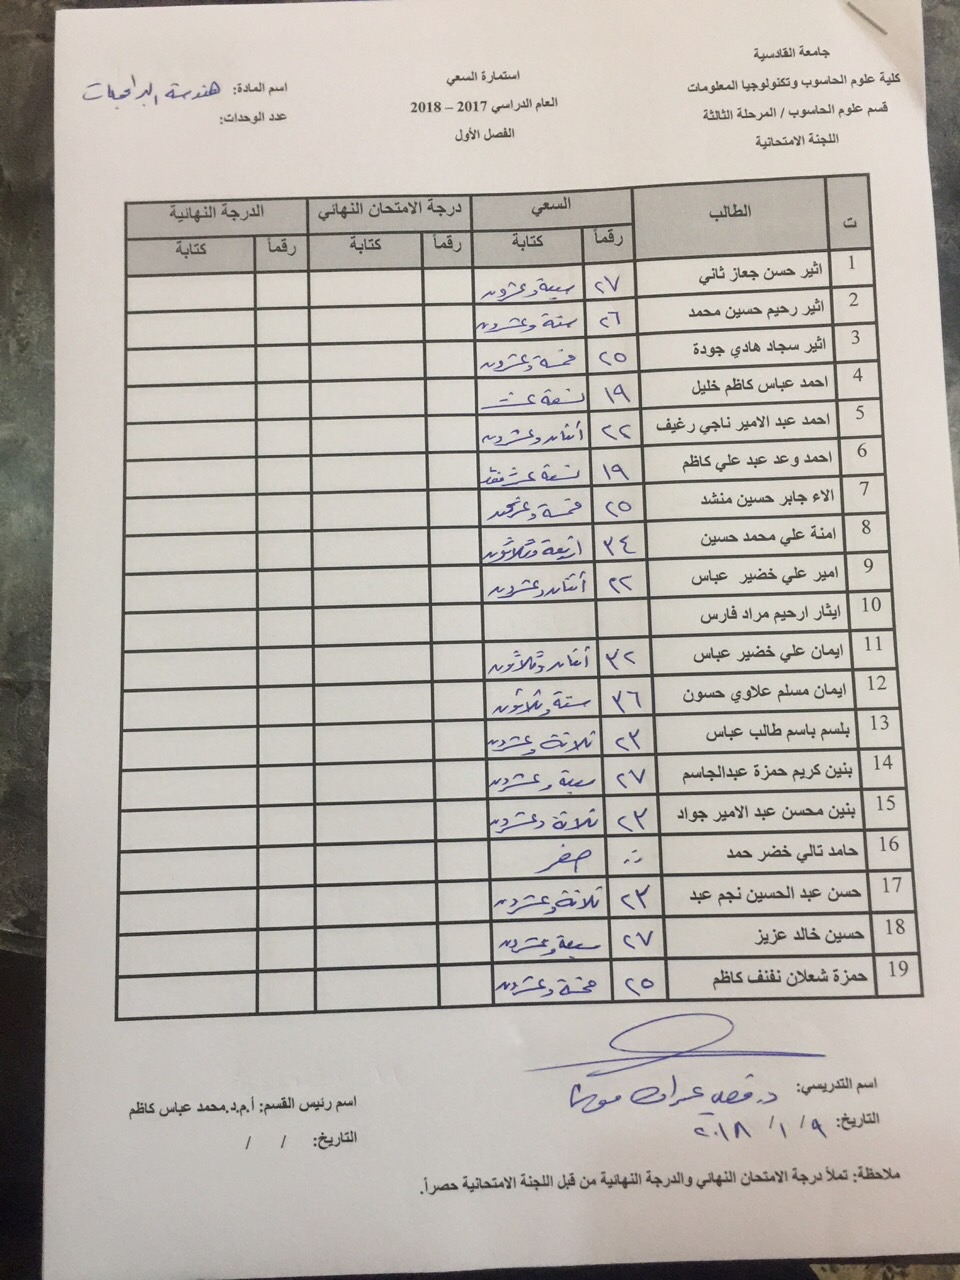 جامعة القادسية
كلية علوم الحاسوب وتكنولوجيا المعلومات
قسم علوم الحاسوب / المرحلة الثالثة
اللجنة الامتحانية
استمارة السعي
العام الدراسي 2017 – 2018
الفصل الأول
اسم المادة: هندسة البرامجيات
عدد الوحدات:
ت الطالب السعي درجة الامتحان النهائي الدرجة النهائية
رقماً كتابة رقماً كتابة رقماً كتابة
1 اثير حسن جعاز ثاني ٢٧ سبعة وعشرون
2 اثير رحيم حسين محمد ٢٦ ستة وعشرون
3 اثير سجاد هادي جودة ٢٥ خمسة وعشرون
4 احمد عباس كاظم خليل ١٩ تسعة عشر
5 احمد عبد الامير ناجي رغيف ٢٢ أثنان وعشرون
6 احمد وعد عبد علي كاظم ١٩ تسعة عشر فقط
7 الاء جابر حسين منشد ٢٥ خمسة وعشرون
8 امنة علي محمد حسين ٣٤ اربعة وثلاثون
9 امير علي خضير عباس ٢٢ أثنان وعشرون
10 ايثار ارحيم مراد فارس
11 ايمان علي خضير عباس ٣٢ أثنان وثلاثون
12 ايمان مسلم علاوي حسون ٣٦ ستة وثلاثون
13 بلسم باسم طالب عباس ٢٣ ثلاثة وعشرون
14 بنين كريم حمزة عبدالجاسم ٢٧ سبعة وعشرون
15 بنين محسن عبد الامير جواد ٢٣ ثلاثة وعشرون
16 حامد تالي خضر حمد صفر
17 حسن عبد الحسين نجم عبد ٢٣ ثلاثة وعشرون
18 حسين خالد عزيز ٢٧ سبعة وعشرون
19 حمزة شعلان نفنف كاظم ٢٥ خمسة وعشرون
اسم التدريسي: د. قصي
التاريخ: ٩ / ١ / ٢٠١٨
اسم رئيس القسم: أ.م.د.محمد عباس كاظم
التاريخ: / /
ملاحظة: تملأ درجة الامتحان النهائي والدرجة النهائية من قبل اللجنة الامتحانية حصراً.